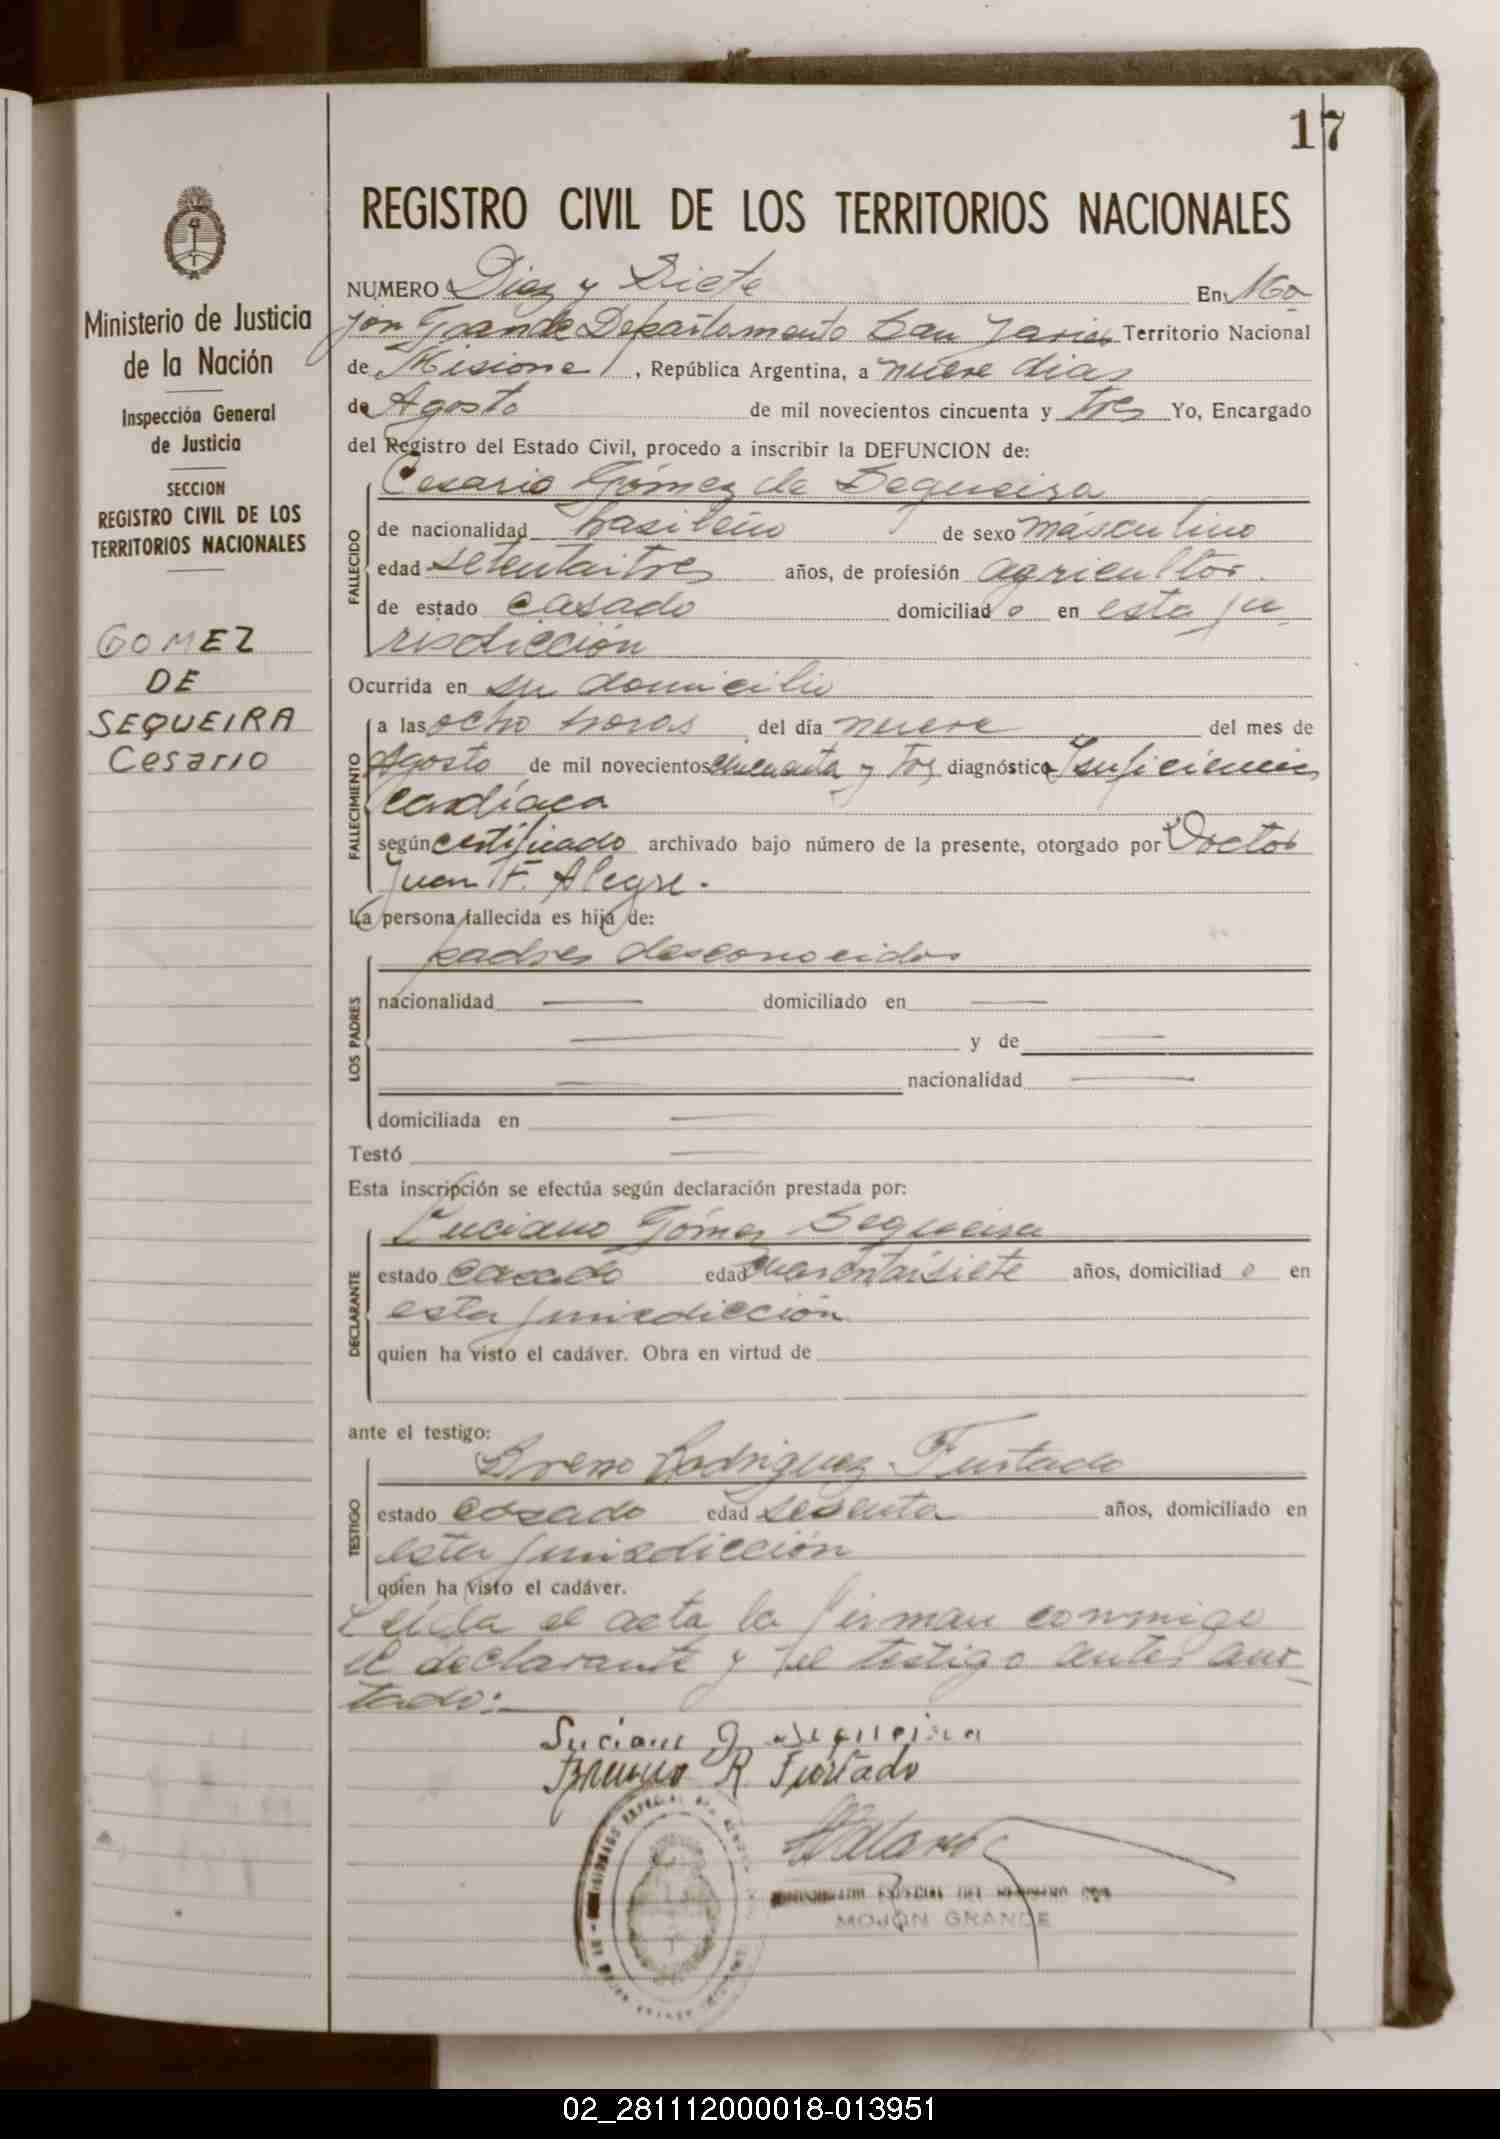 17
Ministerio de Justicia
de la Nación
Inspección General
de Justicia
SECCION
REGISTRO CIVIL DE LOS
TERRITORIOS NACIONALES
GOMEZ
DE
SEQUEIRA
Cesario
REGISTRO CIVIL DE LOS TERRITORIOS NACIONALES
NUMERO Diez y Siete En Mo-
jón Grande Departamento San Javier Territorio Nacional
de Misiones, República Argentina, a nueve dias
de Agosto de mil novecientos cincuenta y tres Yo, Encargado
del Registro del Estado Civil, procedo a inscribir la DEFUNCION de:
Cesario Gómez de Sequeira
FALLECIDO
de nacionalidad brasileño de sexo másculino
edad setentaitres años, de profesión agricultor.
de estado casado domiciliado en esta ju-
risdicción
Ocurrida en su domicilio
FALLECIMIENTO
a las ocho horas del día nueve del mes de
Agosto de mil novecientos cincuenta y tres diagnóstico Insuficiencia
cardíaca
según certificado archivado bajo número de la presente, otorgado por Doctor
Juan F. Alegre.
La persona fallecida es hija de:
padres desconocidos
LOS PADRES
nacionalidad — domiciliado en —
— y de —
— nacionalidad —
domiciliada en —
Testó —
Esta inscripción se efectúa según declaración prestada por:
Luciano Gómez Sequeira
DECLARANTE
estado casado edad cuarentaisiete años, domiciliado en
esta jurisdicción
quien ha visto el cadáver. Obra en virtud de
ante el testigo:
Breno Rodriguez Furtado
TESTIGO
estado casado edad sesenta años, domiciliado en
esta jurisdicción
quien ha visto el cadáver.
Leída el acta la firman conmigo
el declarante y el testigo antes ano-
tado:—
Luciano G Sequeira
R Furtado
MOJON GRANDE
02_281112000018-013951